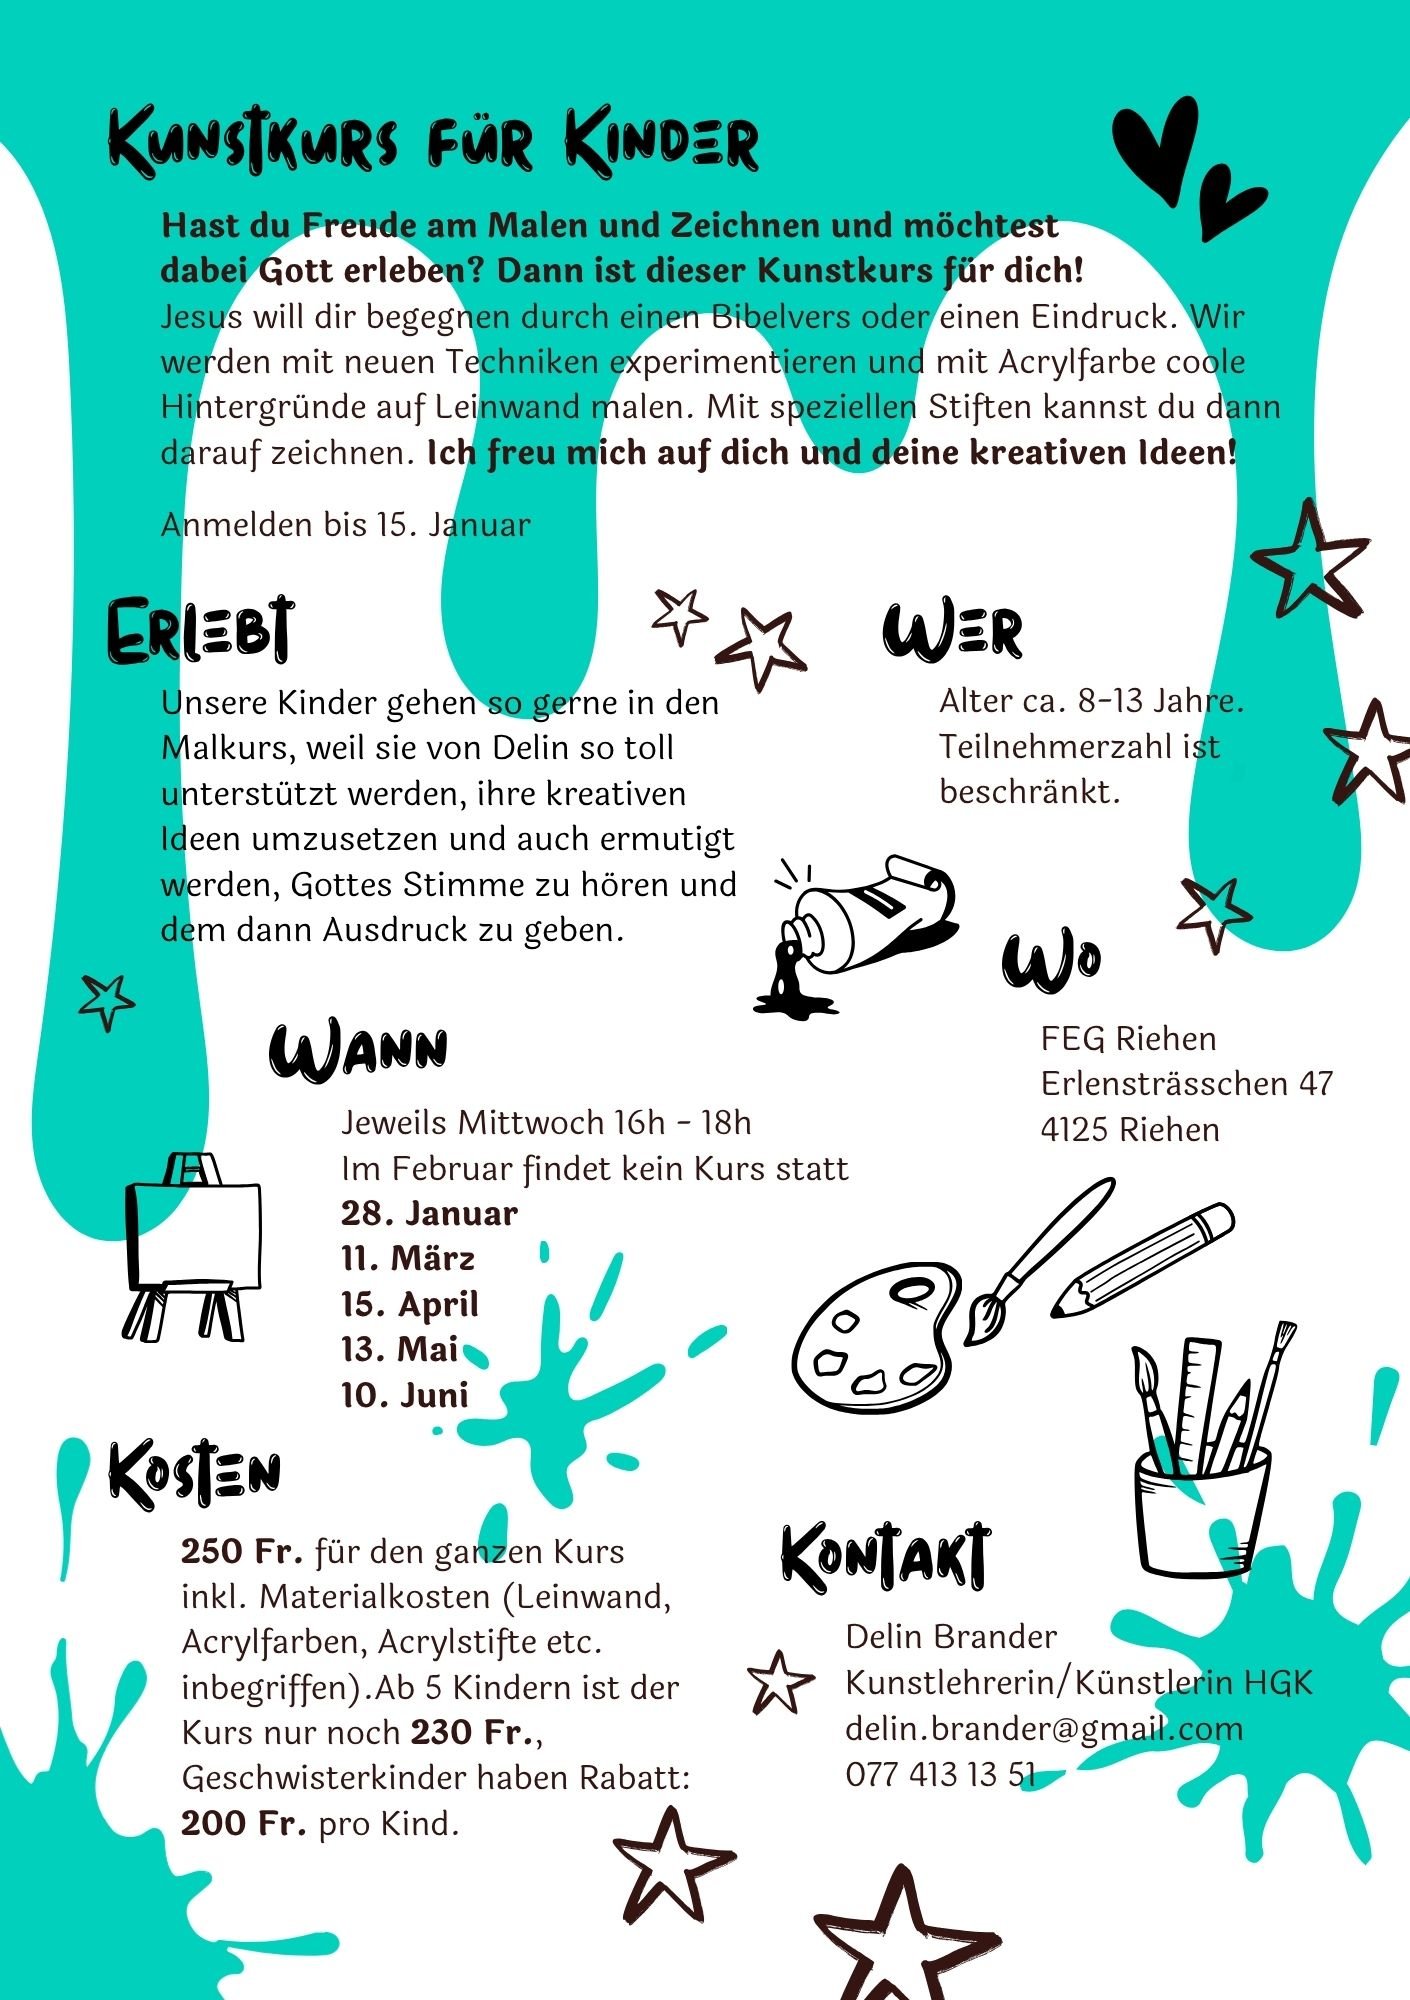 Kunstkurs für Kinder
Hast du Freude am Malen und Zeichnen und möchtest
dabei Gott erleben? Dann ist dieser Kunstkurs für dich!
Jesus will dir begegnen durch einen Bibelvers oder einen Eindruck. Wir
werden mit neuen Techniken experimentieren und mit Acrylfarbe coole
Hintergründe auf Leinwand malen. Mit speziellen Stiften kannst du dann
darauf zeichnen. Ich freu mich auf dich und deine kreativen Ideen!
Anmelden bis 15. Januar
Erlebt
Unsere Kinder gehen so gerne in den
Malkurs, weil sie von Delin so toll
unterstützt werden, ihre kreativen
Ideen umzusetzen und auch ermutigt
werden, Gottes Stimme zu hören und
dem dann Ausdruck zu geben.
Wer
Alter ca. 8-13 Jahre.
Teilnehmerzahl ist
beschränkt.
Wo
FEG Riehen
Erlensträsschen 47
4125 Riehen
Wann
Jeweils Mittwoch 16h - 18h
Im Februar findet kein Kurs statt
28. Januar
11. März
15. April
13. Mai
10. Juni
Kosten
250 Fr. für den ganzen Kurs
inkl. Materialkosten (Leinwand,
Acrylfarben, Acrylstifte etc.
inbegriffen).Ab 5 Kindern ist der
Kurs nur noch 230 Fr.,
Geschwisterkinder haben Rabatt:
200 Fr. pro Kind.
Kontakt
Delin Brander
Kunstlehrerin/Künstlerin HGK
delin.brander@gmail.com
077 413 13 51